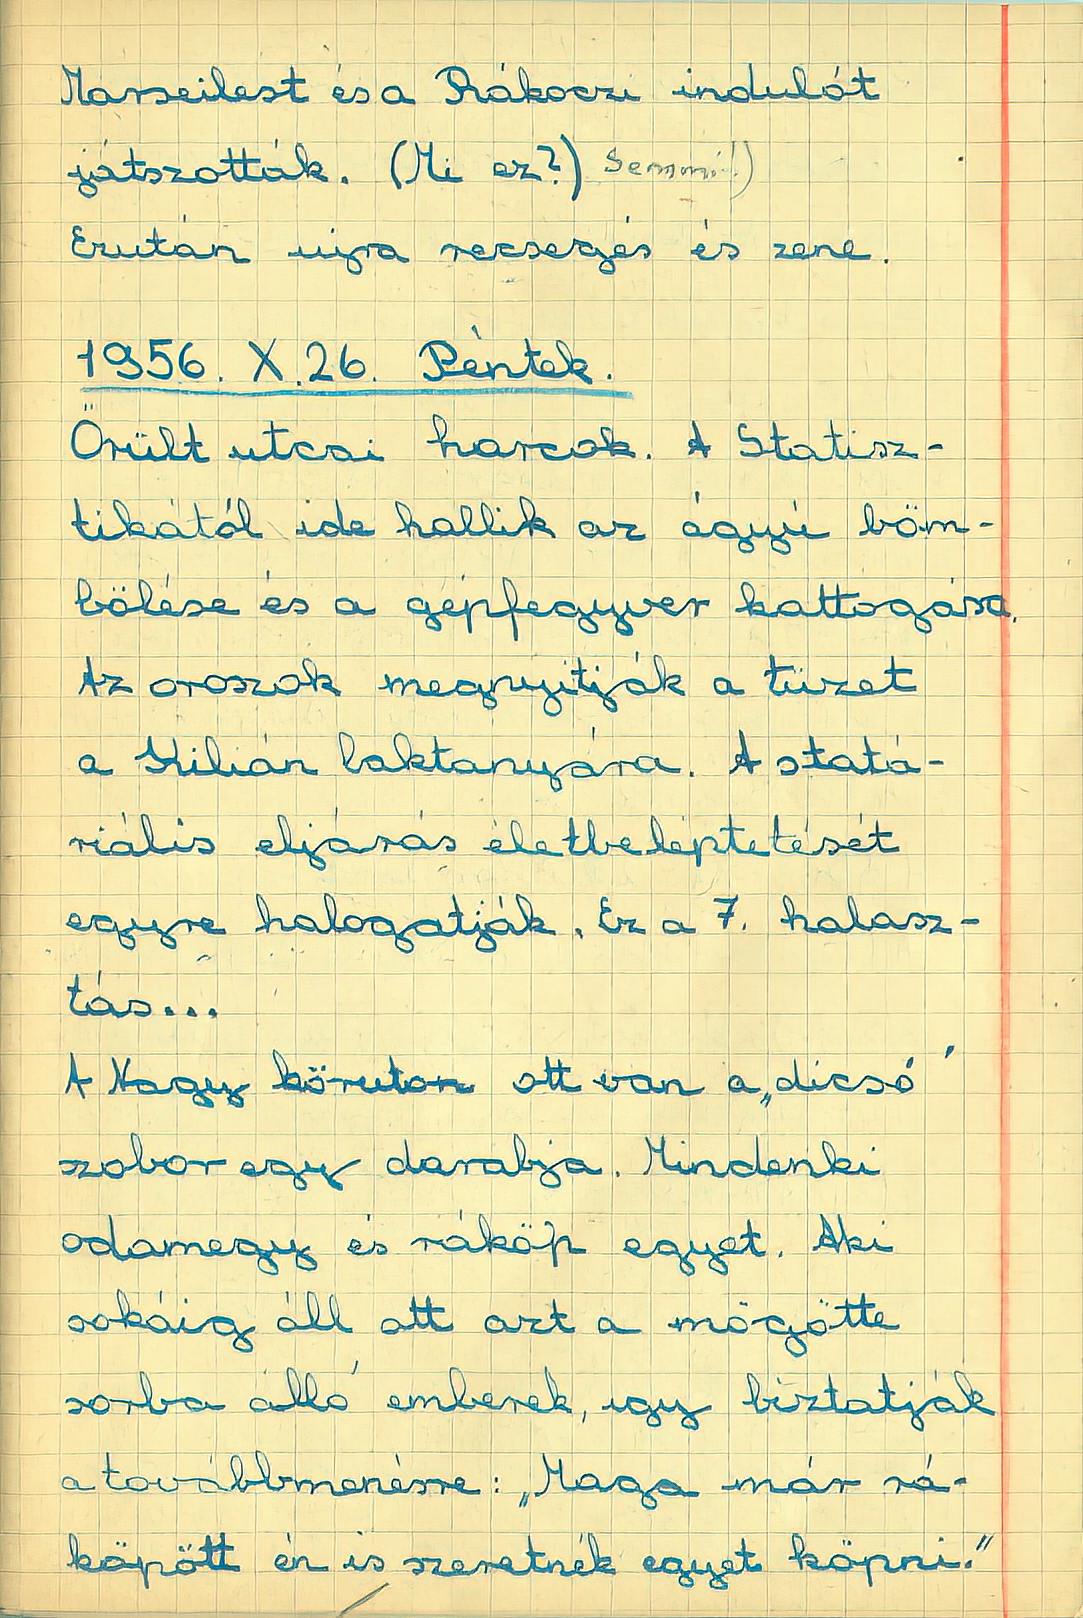 Marseilest és a Rákoczi indulót
játszották. (Mi ez?) Semmi!)
Ezután ujra recsegés és zene.
1956. X. 26. Péntek.
Őrült utcai harcok. A Statisz-
tikától ide hallik az ágyú böm-
bölése és a gépfegyver kattogása.
Az oroszok megnyitják a tüzet
a Kilián laktanyára. A statá-
riális eljárás életbeléptetését
egyre halogatják. Ez a 7. halasz-
tás...
A Nagy köruton ott van a „dicső"
szobor egy darabja. Mindenki
odamegy és ráköp egyet. Aki
sokáig áll ott azt a mögötte
sorba álló emberek, igy biztatják
a továbbmenésre: „Maga már rá-
köpött én is szeretnék egyet köpni."